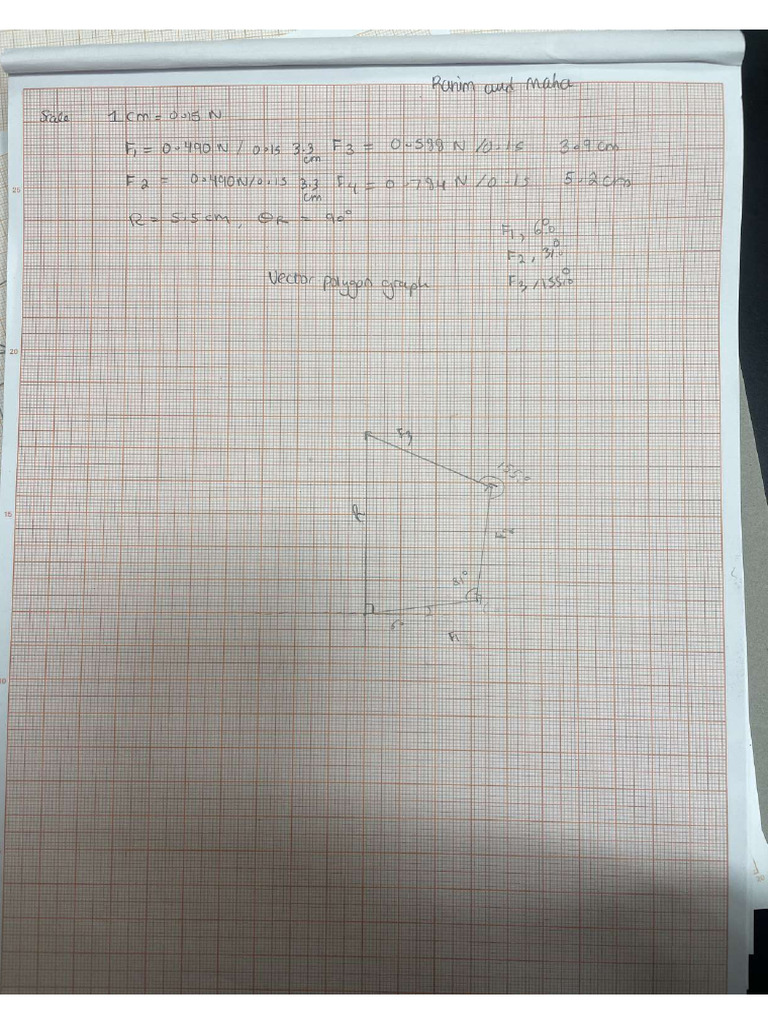 Ranim and Maha
Scale 1 cm = 0.15 N
F1 = 0.490 N / 0.15 3.3 cm F3 = 0.588 N / 0.15 3.9 cm
F2 = 0.490 N / 0.15 3.3 cm F4 = 0.784 N / 0.15 5.2 cm
R = 5.5 cm, θR = 90°
F1, 6.0°
F2, 31.0°
Vector polygon graph F3, 155.0°
25
20
15
10
F3
155.0
R
F2
31°
6°
F1